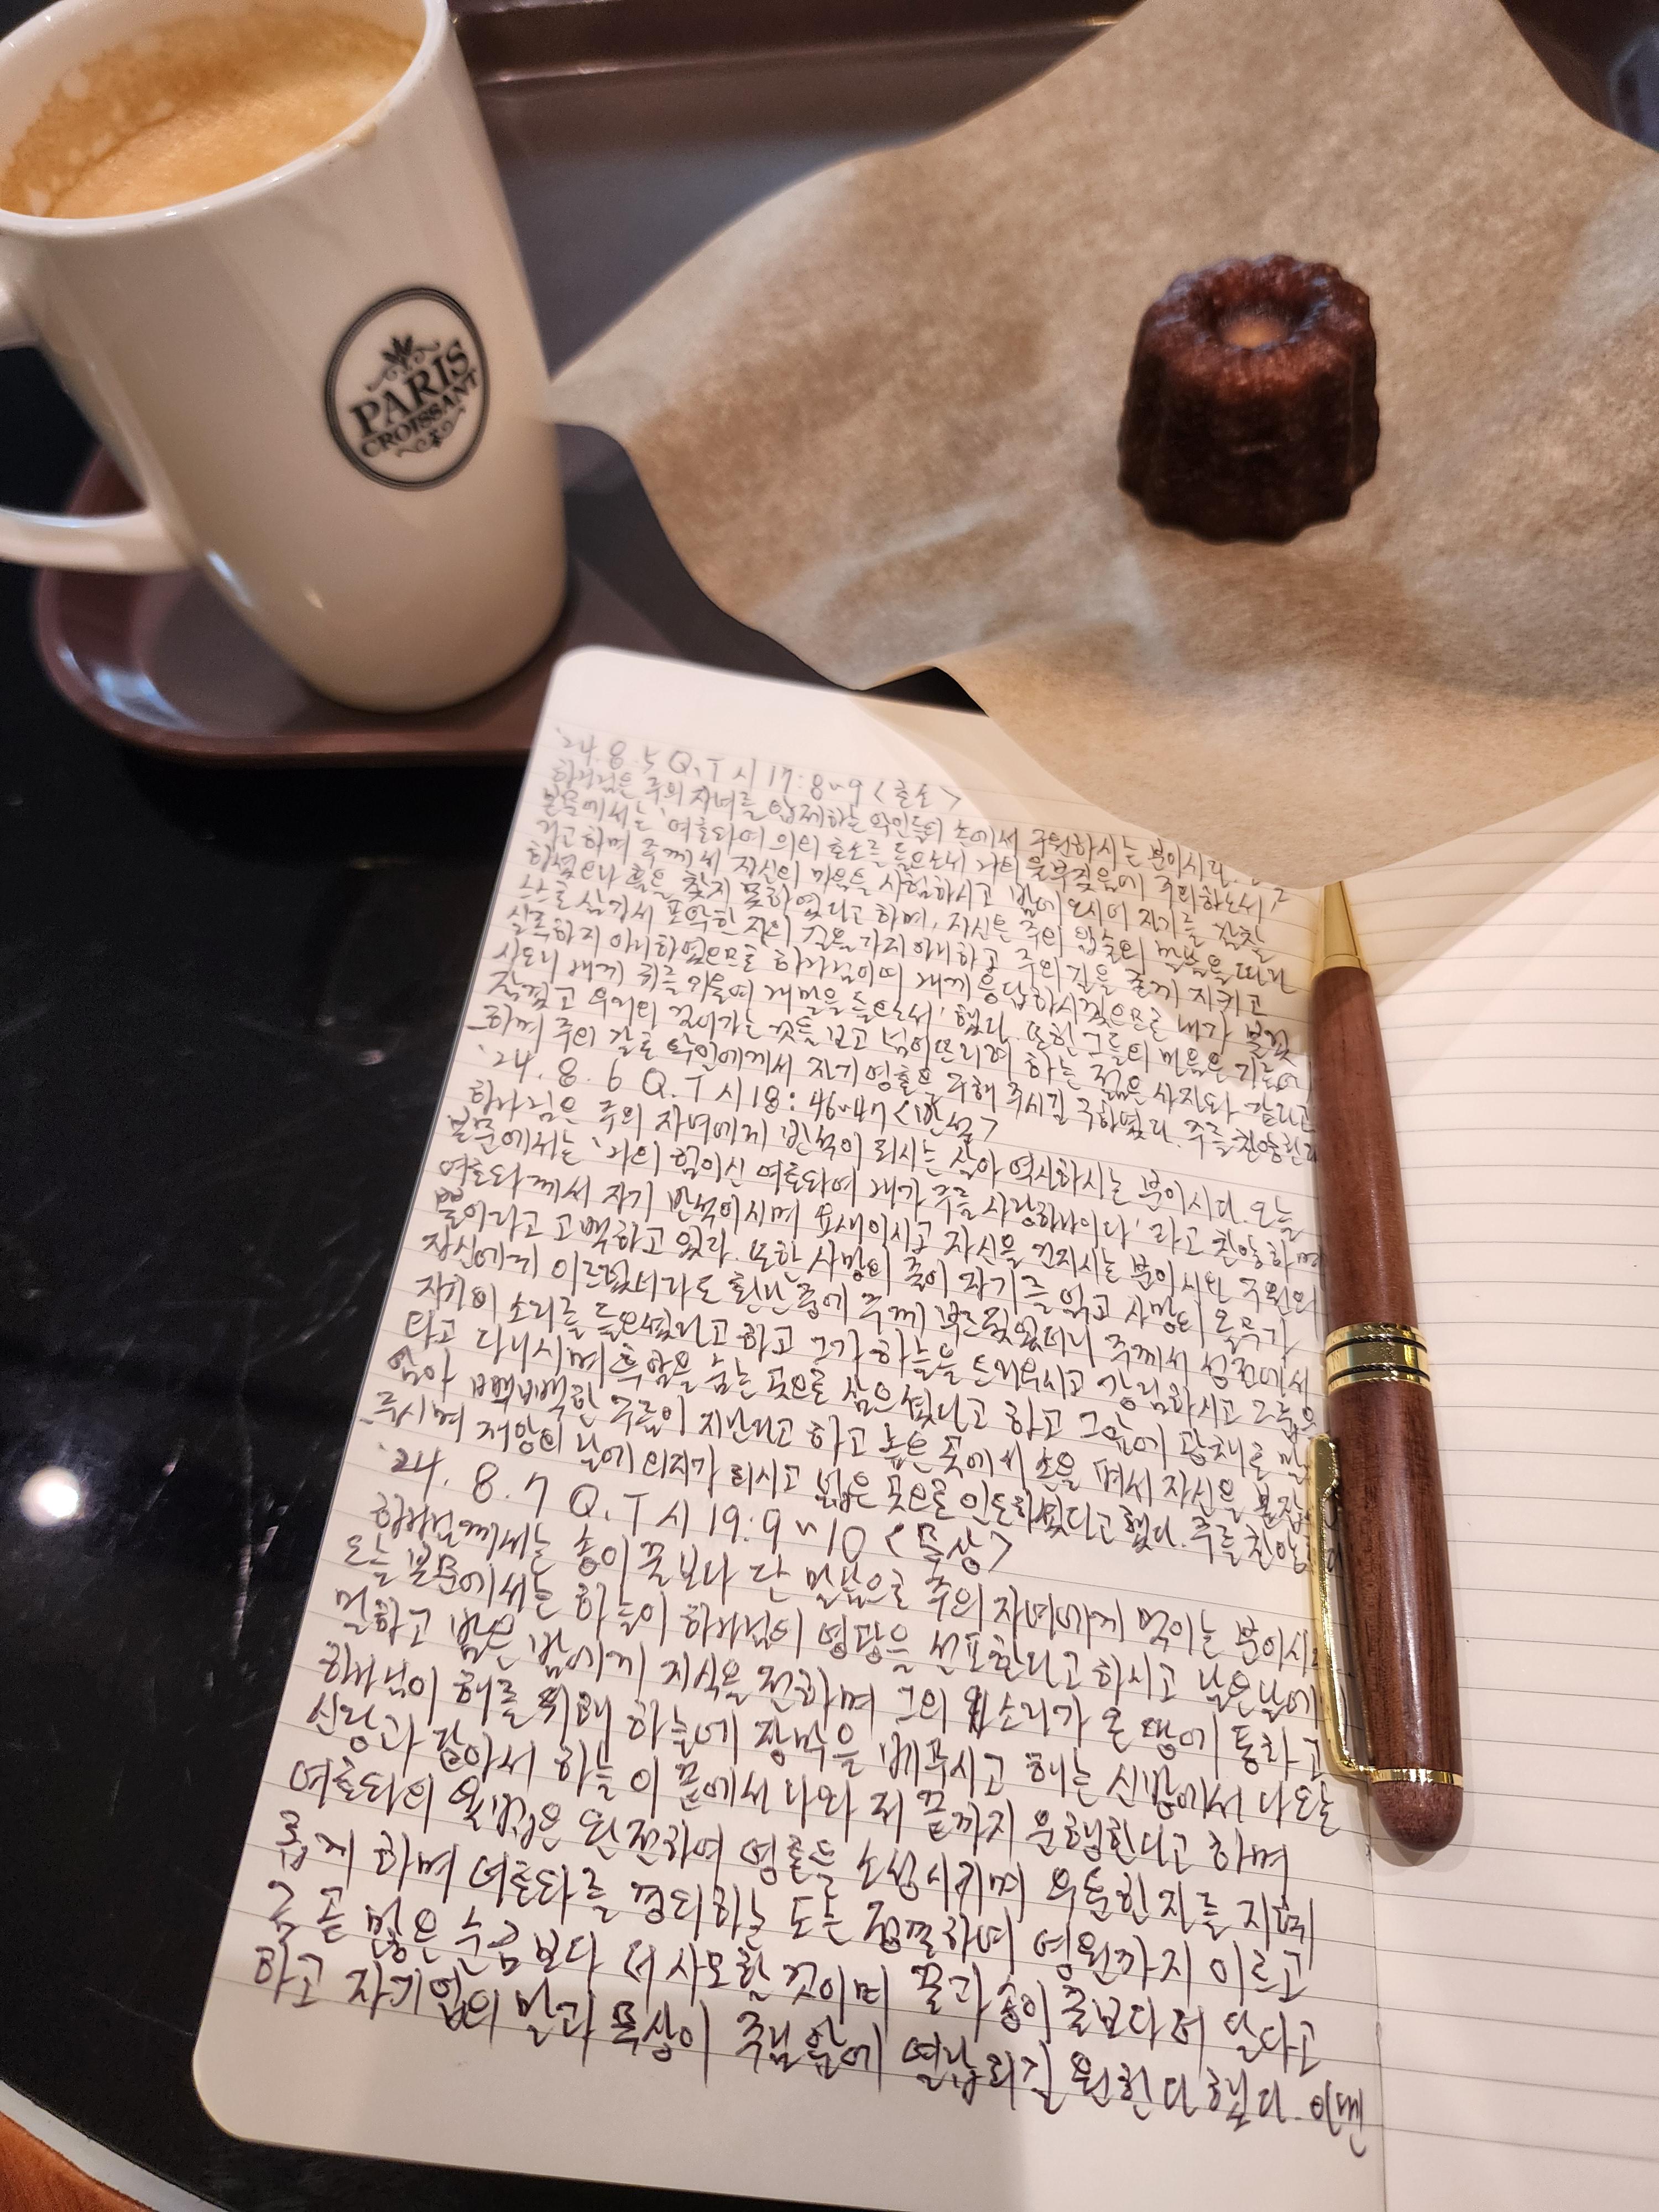 PARIS
CROISSANT
'24. 8. 5 Q.T 시 17:8~9 <호소>
하나님은 주의 자녀를 압제하는 악인들의 손에서 구원하시는 분이시다.
본문에서는 '여호와여 의의 호소를 들으소서 나의 울부짖음에 주의하소서'
하고 하며 주께서 자신의 마음을 시험하시고 밤에 오시어 자기를 감찰
하셨으나 흠을 찾지 못하였다고 하며, 자신은 주의 입술의 말씀을 따라
스스로 삼가서 포악한 자의 길을 가지 아니하고 주의 길을 굳게 지키고
실족하지 아니하였으므로 하나님이여 내게 응답하시겠으므로 내가 불렀
사오니 내게 귀를 기울여 내 말을 들으소서' 했다. 또한 그들의 마음은 기름에
잠겼고 우리의 걸어가는 것을 보고 넘어뜨리려 하는 젊은 사자와 같다고
하며 주의 칼로 악인에게서 자기 영혼을 구해 주시길 구하였다. 주를 찬양한다
'24. 8. 6 Q.T 시 18:46~47 <반석>
하나님은 주의 자녀에게 반석이 되시는 살아 역사하시는 분이시다. 오늘
본문에서는 '나의 힘이신 여호와여 내가 주를 사랑하나이다' 라고 찬양하며
여호와께서 자기 반석이시며 요새이시고 자신을 건지시는 분이시요 구원의
뿔이라고 고백하고 있다. 또한 사망의 줄이 자기를 얽고 사망의 올무가
자신에게 이르렀더라도 환난 중에 주께 부르짖었더니 주께서 성전에서
자기의 소리를 들으셨다고 하고 그가 하늘을 드리우시고 강림하시고 그룹을
타고 다니시며 흑암을 숨는 곳으로 삼으셨다고 하고 그 앞에 광채로 말
암아 빽빽한 구름이 지난다고 하고 높은 곳에서 손을 펴서 자신을 붙잡
주시며 재앙의 날에 의지가 되시고 넓은 곳으로 인도하셨다고 했다. 주를 찬양
'24. 8. 7 Q.T 시 19:9~10 <묵상>
하나님께서는 송이 꿀보다 단 말씀으로 주의 자녀에게 먹이는 분이시
오늘 본문에서는 하늘이 하나님의 영광을 선포한다고 하시고 날은 날에
말하고 밤은 밤에게 지식을 전하며 그의 소리가 온 땅에 통하고
하나님이 해를 위해 하늘에 장막을 베푸시고 해는 신방에서 나오는
신랑과 같아서 하늘 이 끝에서 나와 저 끝까지 운행한다고 하며
여호와의 율법은 완전하여 영혼을 소생시키며 우둔한 자를 지혜
롭게 하며 여호와를 경외하는 도는 정결하여 영원까지 이르고
금 곧 많은 순금보다 더 사모할 것이며 꿀과 송이 꿀보다 더 달다고
하고 자기 입의 말과 묵상이 주님 앞에 열납되길 원한다 했다. 아멘